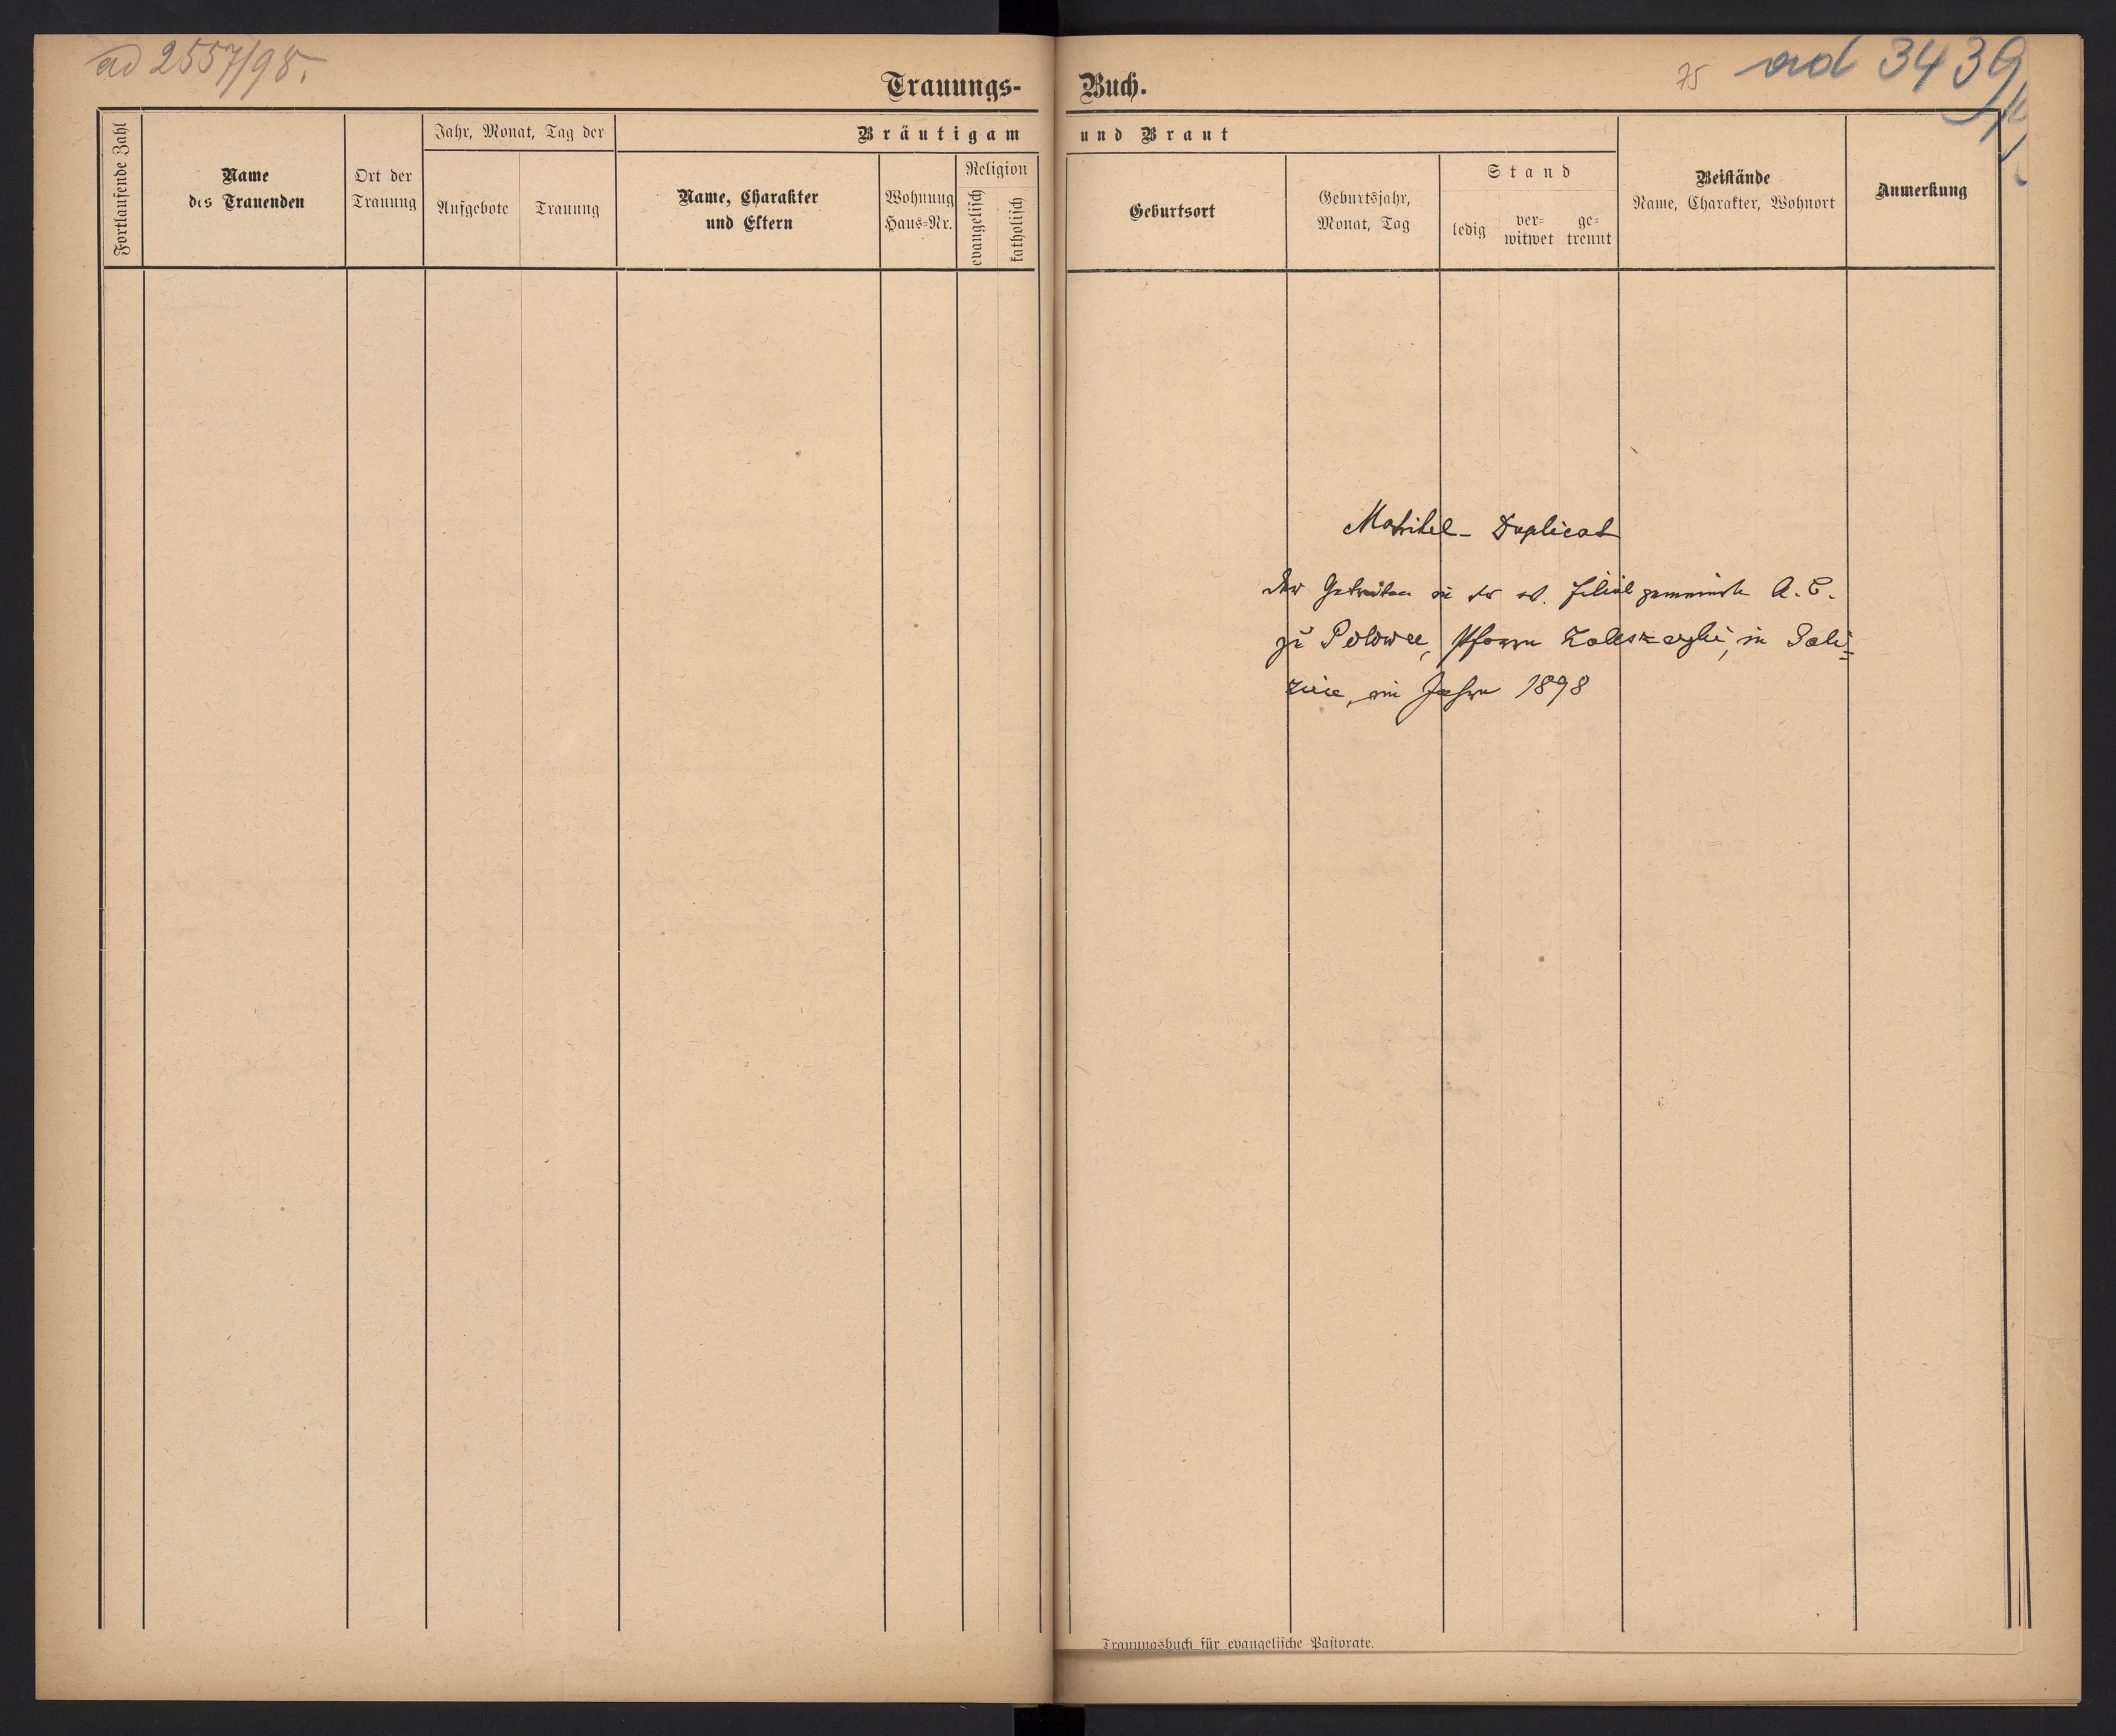 ad 2557/98.
75 ad 3439
Trauungs-Buch.
Fortlaufende Zahl
Name
des Trauenden
Ort der
Trauung
Jahr, Monat, Tag der
Aufgebote Trauung
Bräutigam und Braut
Name, Charakter
und Eltern
Wohnung
Haus-Nr.
Religion
evangelisch
katholisch
Geburtsort
Geburtsjahr,
Monat, Tag
Stand
ledig
ver-
witwet
ge-
trennt
Beistände
Name, Charakter, Wohnort
Anmerkung
Matrikel-Duplicat
der Getrauten in der ev. Filialgemeinde A. C.
zu Pfarre Zaleszczyki, in Gali=
zien, im Jahre 1898
Trauungsbuch für evangelische Pastorate.